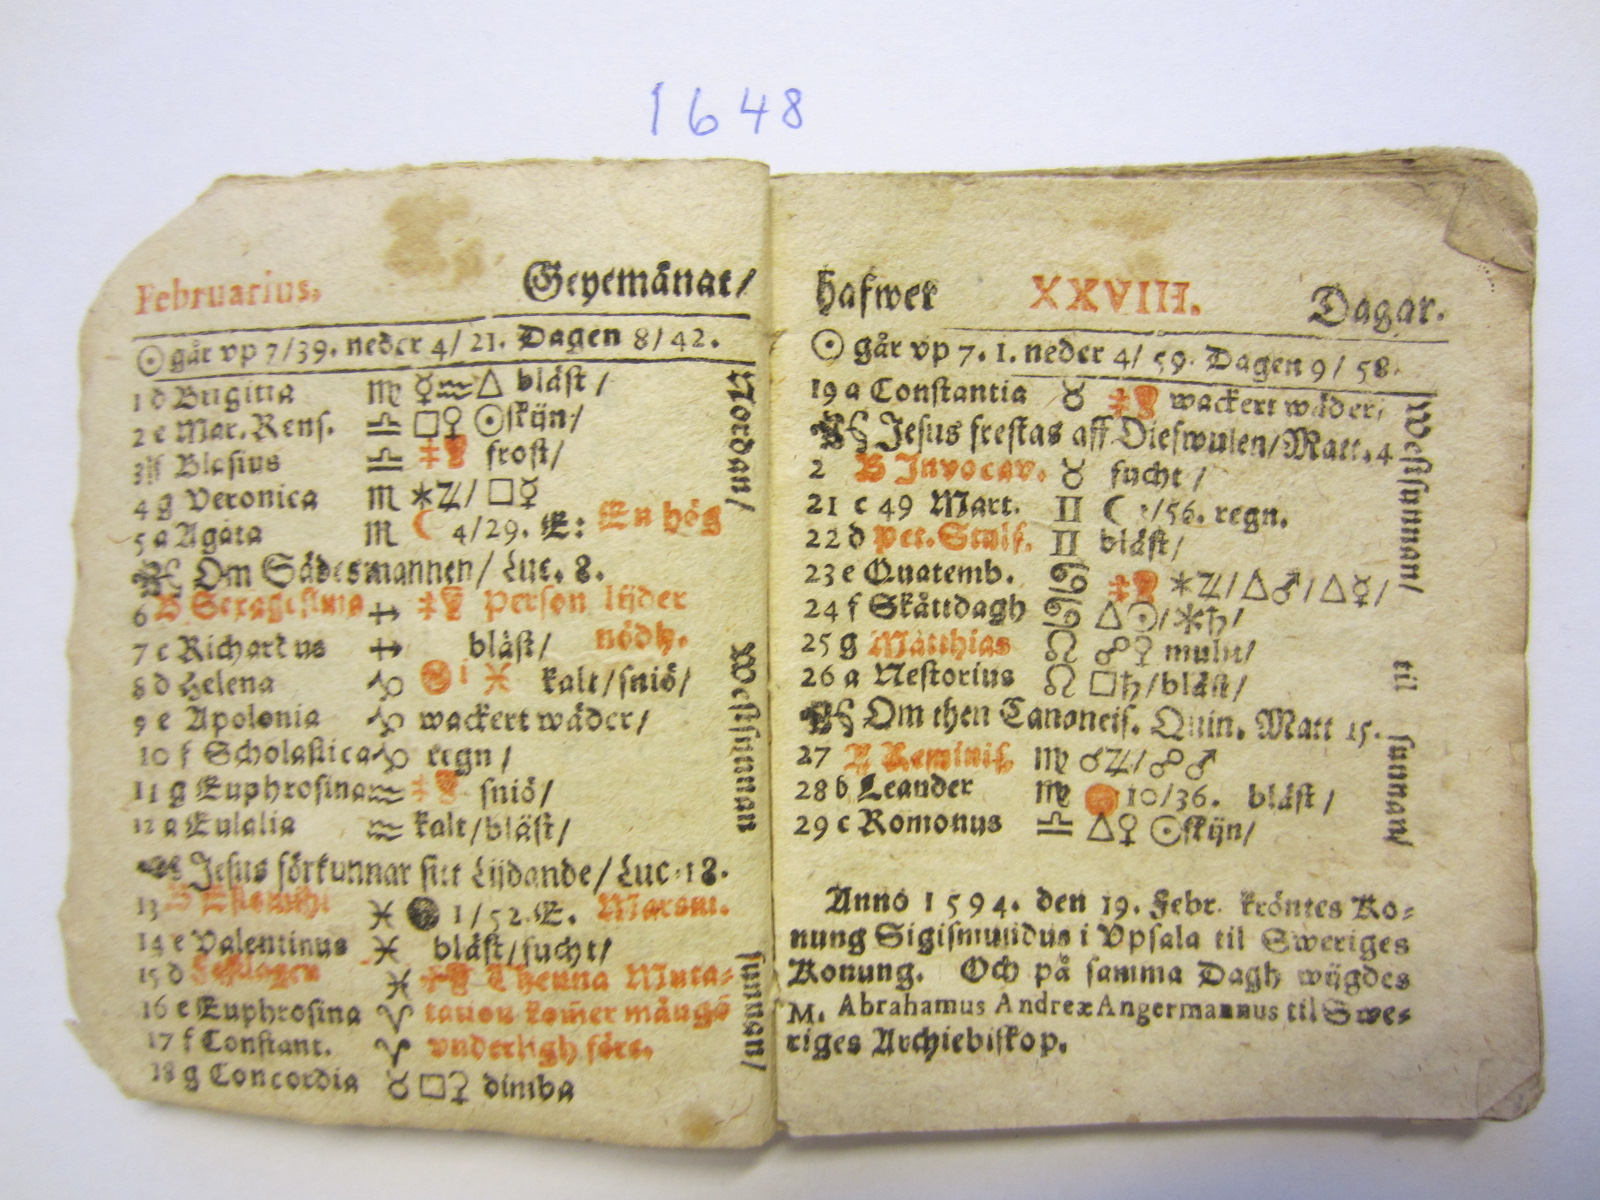 1648
Februarius. Geyemånat/
☉ går vp 7/39. neder 4/ 21. Dagen 8/ 42.
1 d Brigitta ♍ ☿♒△ blåst /
2 e Mar. Rens. ♎ □♀ ☉skijn/
3 f Blasius ♎ frost/
4 g Veronica ♏ ✶♃/ □☿
5 a Agata ♏ ☾ 4/29. E: En hög
Om Sädesmannen/ Luc. 8.
6 B Sexagesima ♐ Person lijder
7 c Richardus ♐ blåst/ nödh.
8 d Helena ♑ ♓ kalt/sniö/
9 e Apolonia ♑ wackert wäder/
10 f Scholastica ♑ regn /
11 g Euphrosina ♒ sniö/
12 a Eulalia ♒ kalt/blåst/
Jesus förkunnar sitt Lijdande/ Luc. 18.
13 B Estomihi ♓ 1/52. E.
14 c Valentinus ♓ blåst/fucht/
15 d ♓ Thenna Muta-
16 e Euphrosina ♈ tation kom̃er mångō
17 f Constant. ♈ vnderligh före.
18 g Concordia ♉ □♀ dimba
Nordan/
Westsunnan
sunnan/
hafwer XXVIII. Dagar.
☉ går vp 7. 1. neder 4/ 59. Dagen 9/ 58.
19 a Constantia ♉ wackert wäder/
Jesus frestas aff Diefwulen/Matt. 4
2 B Invocav. ♉ fucht /
21 c 49 Mart. ♊ ☾ /56. regn.
22 d Pet. Stulf. ♊ blåst/
23 e Quatemb. ♋ ✶♃/△♂/△☿/
24 f Skåttdagh ♋ △☉/✶♄/
25 g Matthias ♌ ☍♀ muln/
26 a Nestorius ♌ □♄/blåst/
Om then Cananeis. Quin. Matt 15.
27 B Reminis. ♍ ☌♃/☍♂
28 b Leander ♍ 10/36. blåst /
29 c Romonus ♎ △♀ ☉skijn/
Westsunnan/
til
sunnan/
Anno 1594. den 19. Febr. kröntes Ko-
nung Sigismundus i Vpsala til Sweriges
Konung. Och på samma Dagh wijgdes
M. Abrahamus Andreæ Angermannus til Swe-
riges Archiebiskop.